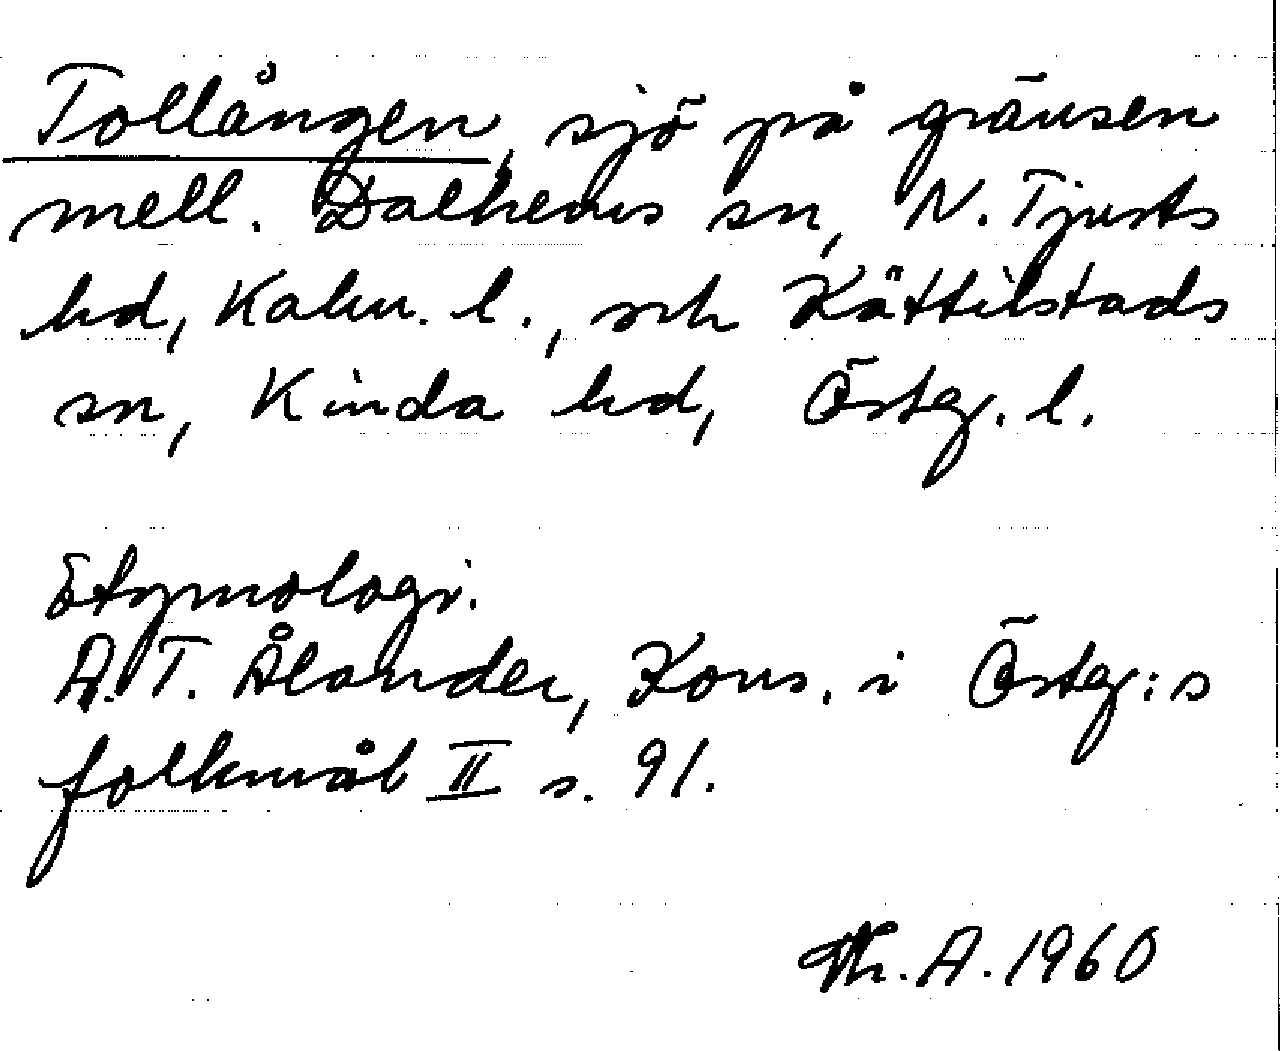 Tollången, sjö på gränsen
mell. Dalhems sn, N. Tjusts
hd, Kalm. l., och Kättilstads
sn, Kinda hd, Östg. l.
Etymologi.
A. T. Ålander, Kons. i Östg:s
folkmål II s. 91.
Th. A. 1960